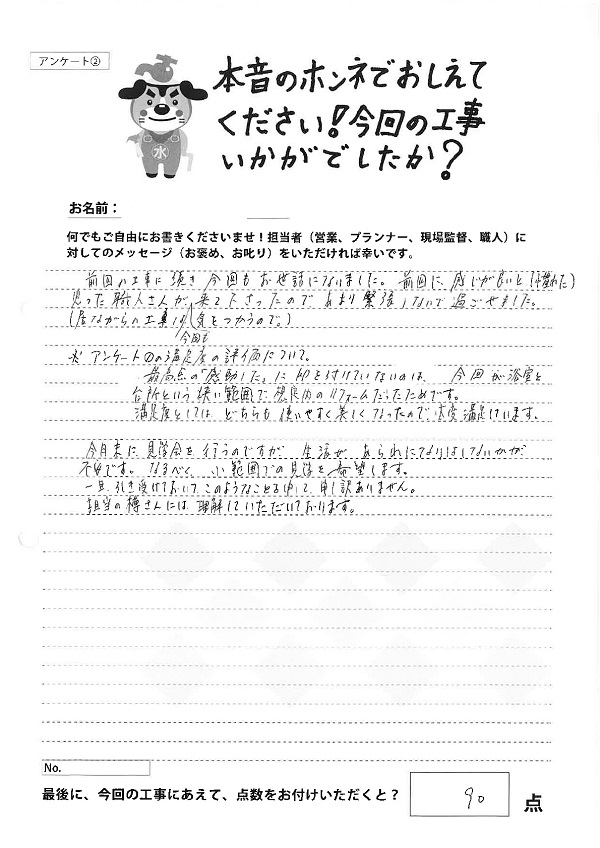 アンケート②
本音のホンネでおしえて
ください！今回の工事
いかがでしたか？
水
お名前：
何でもご自由にお書きくださいませ！担当者（営業、プランナー、現場監督、職人）に
対してのメッセージ（お褒め、お叱り）をいただければ幸いです。
前回の工事に続き今回もお世話になりました。前回に、感じが良いと
思った職人さんが、来て下さったので、あまり緊張しないで過ごせました。
（居ながらの工事は気をつかうので。）
今回も
※アンケート①の満足度の評価について。
最高点の「感動した」に印を付けていないのは、今回が浴室と
台所という狭い範囲で、想定内のリフォームだったためです。
満足度としては、どちらも使いやすく美しくなったので、大変満足しています。
今月末に見学会を行うのですが、生活が、あらわになりはしないかが
不安です。なるべく、小範囲での見学を希望します。
一旦、引き受けておいて、このようなことを申して、申し訳ありません。
担当の樽さんには、理解していただいております。
No.
最後に、今回の工事にあえて、点数をお付けいただくと？
90
点